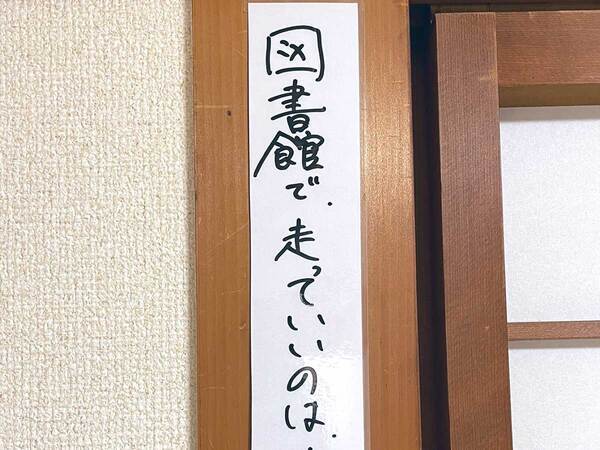 図書館で走っていいのは